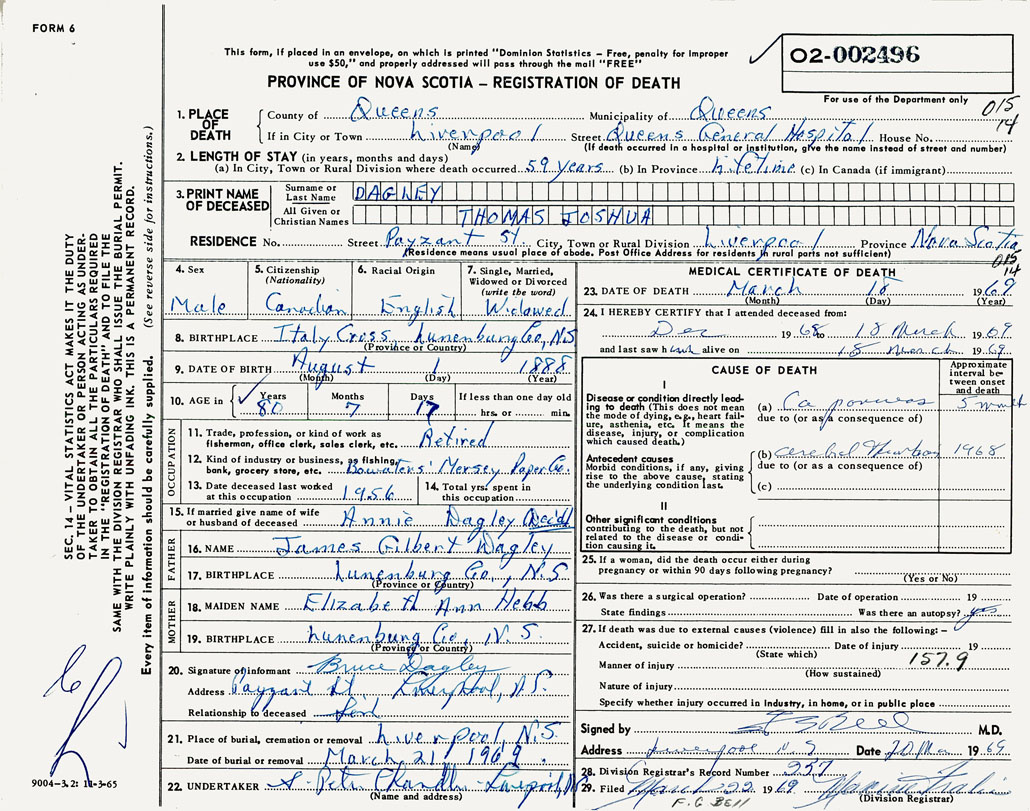 FORM 6
This form, if placed in an envelope, on which is printed "Dominion Statistics – Free, penalty for improper
use $50," and properly addressed will pass through the mail "FREE"
PROVINCE OF NOVA SCOTIA – REGISTRATION OF DEATH
02-002496
For use of the Department only
015
14
1. PLACE OF DEATH
County of Queens Municipality of Queens
If in City or Town Liverpool Street Queens General Hospital House No.
(Name) (If death occurred in a hospital or institution, give the name instead of street and number)
2. LENGTH OF STAY (in years, months and days)
(a) In City, Town or Rural Division where death occurred 59 years (b) In Province Lifetime (c) In Canada (if immigrant)
3. PRINT NAME OF DECEASED
Surname or Last Name DAGLEY
All Given or Christian Names THOMAS JOSHUA
RESIDENCE No. Street Payzant St. City, Town or Rural Division Liverpool Province Nova Scotia
(Residence means usual place of abode. Post Office Address for residents in rural parts not sufficient)
015
14
4. Sex
Male
5. Citizenship
(Nationality)
Canadian
6. Racial Origin
English
7. Single, Married,
Widowed or Divorced
(write the word)
Widowed
8. BIRTHPLACE Italy Cross Lunenburg Co, N.S
(Province or Country)
9. DATE OF BIRTH August 1 1888
(Month) (Day) (Year)
10. AGE in
Years Months Days If less than one day old
80 7 17 hrs. or min.
OCCUPATION
11. Trade, profession, or kind of work as
fisherman, office clerk, sales clerk, etc. Retired
12. Kind of industry or business, as fishing,
bank, grocery store, etc. Bowaters' Mersey Paper Co.
13. Date deceased last worked
at this occupation 1956
14. Total yrs. spent in
this occupation
15. If married give name of wife
or husband of deceased Annie Dagley Dec'd
FATHER
16. NAME James Gilbert Dagley
17. BIRTHPLACE Lunenburg Co., N.S
(Province or Country)
MOTHER
18. MAIDEN NAME Elizabeth Ann Hebb
19. BIRTHPLACE Lunenburg Co, N.S.
(Province or Country)
20. Signature of informant Bruce Dagley
Address Payzant St. Liverpool, N.S.
Relationship to deceased
21. Place of burial, cremation or removal Liverpool, N.S.
Date of burial or removal March 21, 1969
22. UNDERTAKER
(Name and address)
MEDICAL CERTIFICATE OF DEATH
23. DATE OF DEATH March 18 1969
(Month) (Day) (Year)
24. I HEREBY CERTIFY that I attended deceased from:
Dec 1968 to 18 March 1969
and last saw him alive on 18 March 1969
CAUSE OF DEATH
Approximate
interval be-
tween onset
and death
I
Disease or condition directly lead-
ing to death (This does not mean
the mode of dying, e.g., heart fail-
ure, asthenia, etc. It means the
disease, injury, or complication
which caused death.)
(a) Ca pancreas
due to (or as a consequence of)
Antecedent causes
Morbid conditions, if any, giving
rise to the above cause, stating
the underlying condition last.
(b) 1968
due to (or as a consequence of)
(c)
II
Other significant conditions
contributing to the death, but not
related to the disease or condi-
tion causing it.
25. If a woman, did the death occur either during
pregnancy or within 90 days following pregnancy?
(Yes or No)
26. Was there a surgical operation? Date of operation 19
State findings Was there an autopsy? yes
27. If death was due to external causes (violence) fill in also the following: –
Accident, suicide or homicide? Date of injury 19
(State which)
157.9
Manner of injury
(How sustained)
Nature of injury
Specify whether injury occurred in industry, in home, or in public place
Signed by M.D.
Address Liverpool N.S Date 20 Mar 1969
28. Division Registrar's Record Number 257
29. Filed March 22 1969
(Division Registrar)
F. G BELL
SEC. 14 – VITAL STATISTICS ACT MAKES IT THE DUTY
OF THE UNDERTAKER OR PERSON ACTING AS UNDER-
TAKER TO OBTAIN ALL THE PARTICULARS REQUIRED
IN THE "REGISTRATION OF DEATH" AND TO FILE THE
SAME WITH THE DIVISION REGISTRAR WHO SHALL ISSUE THE BURIAL PERMIT.
WRITE PLAINLY WITH UNFADING INK. THIS IS A PERMANENT RECORD.
Every item of information should be carefully supplied. (See reverse side for instructions.)
9004-3.2: 11-3-65